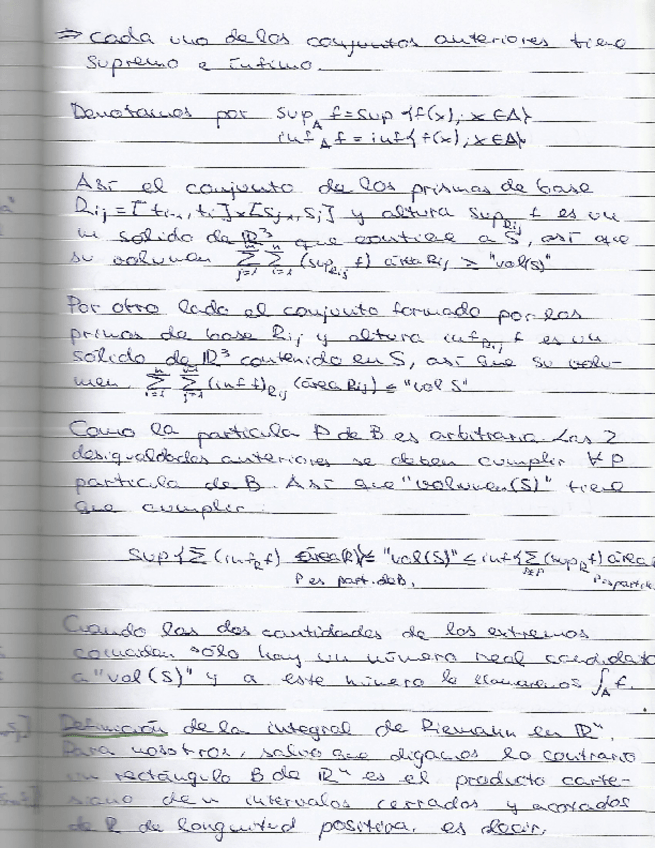 ⇒ cada uno de los conjuntos anteriores tiene
supremo e ínfimo.
Denotamos por sup_A f = sup {f(x); x ∈ A}
inf_A f = inf {f(x); x ∈ A}
Así el conjunto de los prismas de base
R_ij = [t_i-1, t_i] x [s_j-1, s_j] y altura sup_R_ij f es un
un solido de R³ que contiene a S, así que
su volumen ∑_{j=1}^{m} ∑_{i=1}^{n} (sup_R_ij f) área R_ij ≥ "vol(S)"
Por otro lado el conjunto formado por los
primas de base R_ij y altura inf_R_ij f es un
sólido de R³ contenido en S, así que su volu-
men, ∑_{i=1}^{n} ∑_{j=1}^{m} (inf f)_R_ij (área R_ij) ≤ "vol S"
Como la particula P de B es arbitraria. Las 2
desigualdades anteriores se deben cumplir ∀ P
particula de B. Así que "volumen(S)" tiene
que cumplir
sup {∑ (inf_R f) área(R)} ≤ "vol(S)" ≤ inf {∑_{R∈P} (sup_R f) área
P es part. de B. P es partic
Cuando las dos cantidades de los extremos
coincidan sólo hay un número real candidato
a "vol(S)" y a este número le llamaremos ∫_A f.
Definición de la integral de Riemann en Rⁿ.
Para nosotros, salvo que digamos lo contrario
un rectángulo B de Rⁿ es el producto carte-
siano de n intervalos cerrados y acotados
de R de longuitud positiva, es decir,